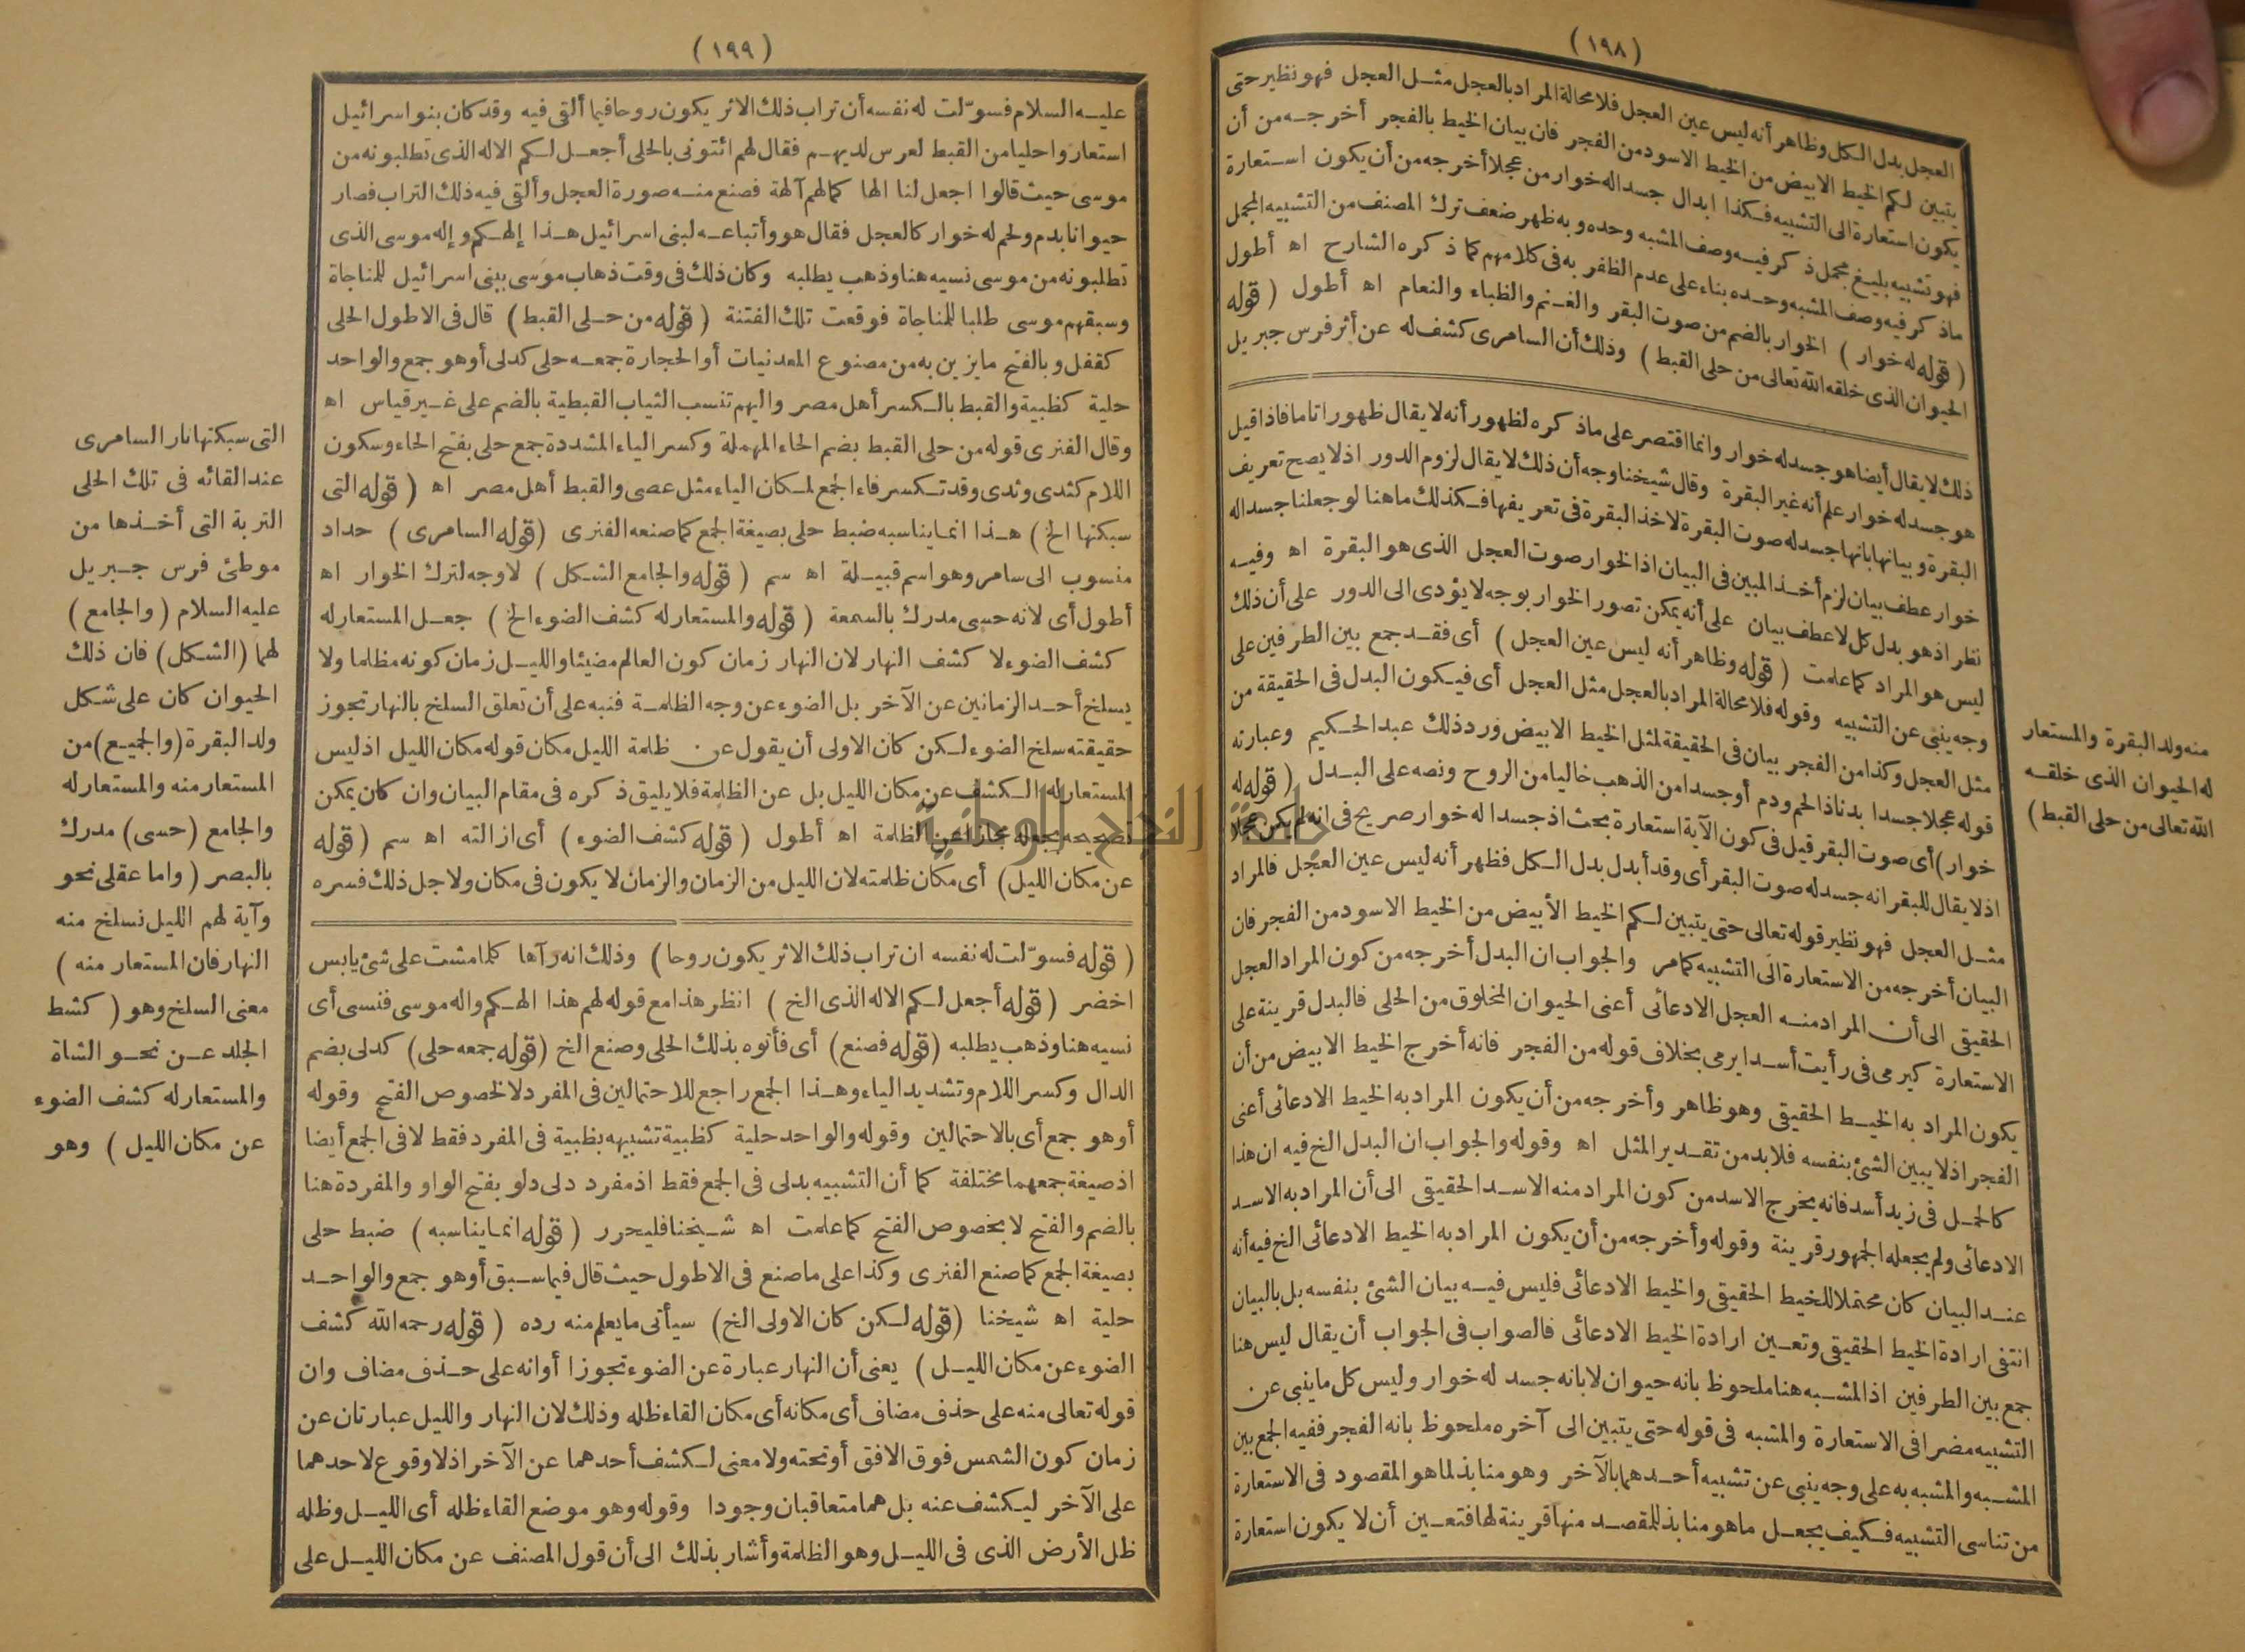 (١٩٨)
العجل بدل الكل وظاهر أنه ليس عين العجل فلا محالة المراد بالعجل مثل العجل فهو نظير حتى
يتبين لكم الخيط الابيض من الخيط الاسود من الفجر فان بيان الخيط بالفجر أخرجه من أن
يكون استعارة الى التشبيه فكذا ابدال جسدا له خوار من عجلا أخرجه من أن يكون استعارة
فهو تشبيه بليغ مجمل ذكر فيه وصف المشبه وحده وبه ظهر ضعف ترك المصنف من التشبيه المجمل
ماذكر فيه وصف المشبه وحده بناء على عدم الظفر به فى كلامهم كما ذكره الشارح اه أطول
(قوله له خوار) الخوار بالضم من صوت البقر والغنم والظباء والنعام اه أطول (قوله
الحيوان الذى خلقه الله تعالى من حلى القبط) وذلك أن السامرى كشف له عن أثر فرس جبريل
ذلك لا يقال أيضا هو جسد له خوار وانما اقتصر على ماذكره لظهور أنه لا يقال ظهورا تاما فاذا قيل
هو جسد له خوار علم أنه غير البقرة وقال شيخنا وجه أن ذلك لا يقال لزوم الدور اذ لا يصح تعريف
البقرة وبيانها بانها جسد له صوت البقرة لاخذ البقرة فى تعريفها فكذلك ما هنا لو جعلنا جسدا له
خوار عطف بيان لزم أخذ المبين فى البيان اذ الخوار صوت العجل الذى هو البقرة اه وفيه
نظر اذ هو بدل كل لا عطف بيان على أنه يمكن تصور الخوار بوجه لا يؤدى الى الدور على أن ذلك
ليس هو المراد كما علمت (قوله وظاهر أنه ليس عين العجل) أى فقد جمع بين الطرفين على
وجه ينبئ عن التشبيه وقوله فلا محالة المراد بالعجل مثل العجل أى فيكون البدل فى الحقيقة من
مثل العجل وكذا من الفجر بيان فى الحقيقة لمثل الخيط الابيض ورد ذلك عبد الحكيم وعبارته
قوله عجلا جسدا بدنا ذا لحم ودم أو جسدا من الذهب خاليا من الروح ونصه على البدل (قوله له
خوار) أى صوت البقر قيل فى كون الآية استعارة بحث اذ جسدا له خوار صريح فى انه لم يكن عجلا
اذ لا يقال للبقر انه جسد له صوت البقر أى وقد أبدل بدل الكل فظهر أنه ليس عين العجل فالمراد
مثل العجل فهو نظير قوله تعالى حتى يتبين لكم الخيط الأبيض من الخيط الاسود من الفجر فان
البيان أخرجه من الاستعارة الى التشبيه كما مر والجواب ان البدل أخرجه من كون المراد العجل
الحقيقى الى أن المراد منه العجل الادعائى أعنى الحيوان المخلوق من الحلى فالبدل قرينة على
الاستعارة كيرمى فى رأيت أسدا يرمى بخلاف قوله من الفجر فانه أخرج الخيط الابيض من أن
يكون المراد به الخيط الحقيقى وهو ظاهر وأخرجه من أن يكون المراد به الخيط الادعائى أعنى
الفجر اذ لا يبين الشئ بنفسه فلا بد من تقدير المثل اه وقوله والجواب ان البدل الخ فيه ان هذا
كالحمل فى زيد أسد فانه يخرج الاسد من كون المراد منه الاسد الحقيقى الى أن المراد به الاسد
الادعائى ولم يجعله الجمهور قرينة وقوله وأخرجه من أن يكون المراد به الخيط الادعائى الخ فيه أنه
عند البيان كان محتملا للخيط الحقيقى والخيط الادعائى فليس فيه بيان الشئ بنفسه بل بالبيان
انتفى ارادة الخيط الحقيقى وتعين ارادة الخيط الادعائى فالصواب فى الجواب أن يقال ليس هنا
جمع بين الطرفين اذ المشبه هنا ملحوظ بانه حيوان لا بانه جسد له خوار وليس كل ما ينبى عن
التشبيه مضرا فى الاستعارة والمشبه فى قوله حتى يتبين الى آخره ملحوظ بانه الفجر ففيه الجمع بين
المشبه والمشبه به على وجه ينبى عن تشبيه أحدهما بالآخر وهو منابذ لما هو المقصود فى الاستعارة
من تناسى التشبيه فكيف يجعل ما هو منابذ للمقصد منها قرينة لها فتعين أن لا يكون استعارة
منه ولد البقرة والمستعار
له الحيوان الذى خلقه
الله تعالى من حلى القبط)
(١٩٩)
عليه السلام فسوّلت له نفسه أن تراب ذلك الاثر يكون روحا فيما ألقى فيه وقد كان بنو اسرائيل
استعاروا حليا من القبط لعرس لديهم فقال لهم ائتونى بالحلى أجعل لكم الاله الذى تطلبونه من
موسى حيث قالوا اجعل لنا الها كما لهم آلهة فصنع منه صورة العجل وألقى فيه ذلك التراب فصار
حيوانا بدم ولحم له خوار كالعجل فقال هو وأتباعه لبنى اسرائيل هذا إلهكم وإله موسى الذى
تطلبونه من موسى نسيه هنا وذهب يطلبه وكان ذلك فى وقت ذهاب موسى ببنى اسرائيل للمناجاة
وسبقهم موسى طلبا للمناجاة فوقعت تلك الفتنة (قوله من حلى القبط) قال فى الاطول الحلى
كقفل وبالفتح ما يزين به من مصنوع المعدنيات أو الحجارة جمعه حلى كدلى أو هو جمع والواحد
حلية كظبية والقبط بالكسر أهل مصر واليهم تنسب الثياب القبطية بالضم على غير قياس اه
وقال الفنرى قوله من حلى القبط بضم الحاء المهملة وكسر الياء المشددة جمع حلى بفتح الحاء وسكون
اللام كثدى وثدى وقد تكسر فاء الجمع لمكان الياء مثل عصى والقبط أهل مصر اه (قوله التى
سبكتها الخ) هذا انما يناسبه ضبط حلى بصيغة الجمع كما صنعه الفنرى (قوله السامرى) حداد
منسوب الى سامر وهو اسم قبيلة اه سم (قوله والجامع الشكل) لا وجه لترك الخوار اه
أطول أى لانه حسى مدرك بالسمعة (قوله والمستعار له كشف الضوء الخ) جعل المستعار له
كشف الضوء لا كشف النهار لان النهار زمان كون العالم مضيئا والليل زمان كونه مظلما ولا
يسلخ أحد الزمانين عن الآخر بل الضوء عن وجه الظلمة فنبه على أن تعلق السلخ بالنهار تجوز
حقيقته سلخ الضوء لكن كان الاولى أن يقول عن ظلمة الليل مكان قوله مكان الليل اذ ليس
المستعار له الكشف عن مكان الليل بل عن الظلمة فلا يليق ذكره فى مقام البيان وان كان يمكن
تصحيحه بجعله مجازا عن الظلمة اه أطول (قوله كشف الضوء) أى ازالته اه سم (قوله
عن مكان الليل) أى مكان ظلمته لان الليل من الزمان والزمان لا يكون فى مكان ولاجل ذلك فسره
(قوله فسوّلت له نفسه ان تراب ذلك الاثر يكون روحا) وذلك انه رآها كلما مشت على شئ يابس
اخضر (قوله أجعل لكم الاله الذى الخ) انظر هذا مع قوله لهم هذا الهكم واله موسى فنسى أى
نسيه هنا وذهب يطلبه (قوله فصنع) أى فأتوه بذلك الحلى وصنع الخ (قوله جمعه حلى) كدلى بضم
الدال وكسر اللام وتشديد الياء وهذا الجمع راجع للاحتمالين فى المفرد لا لخصوص الفتح وقوله
أو هو جمع أى بالاحتمالين وقوله والواحد حلية كظبية تشبيهه بظبية فى المفرد فقط لا فى الجمع أيضا
اذ صيغة جمعهما مختلفة كما أن التشبيه بدلى فى الجمع فقط اذ مفرد دلى دلو بفتح الواو والمفردة هنا
بالضم والفتح لا بخصوص الفتح كما علمت اه شيخنا فليحرر (قوله انما يناسبه) ضبط حلى
بصيغة الجمع كما صنع الفنرى وكذا على ما صنع فى الاطول حيث قال فيما سبق أو هو جمع والواحد
حلية اه شيخنا (قوله لكن كان الاولى الخ) سيأتى ما يعلم منه رده (قوله رحمه الله كشف
الضوء عن مكان الليل) يعنى أن النهار عبارة عن الضوء تجوزا أو انه على حذف مضاف وان
قوله تعالى منه على حذف مضاف أى مكانه أى مكان القاء ظله وذلك لان النهار والليل عبارتان عن
زمان كون الشمس فوق الافق أو تحته ولا معنى لكشف أحدهما عن الآخر اذ لا وقوع لاحدهما
على الآخر ليكشف عنه بل هما متعاقبان وجودا وقوله وهو موضع القاء ظله أى الليل وظله
ظل الأرض الذى فى الليل وهو الظلمة وأشار بذلك الى أن قول المصنف عن مكان الليل على
التى سبكتها نار السامرى
عند القائه فى تلك الحلى
التربة التى أخذها من
موطئ فرس جبريل
عليه السلام (والجامع)
لهما (الشكل) فان ذلك
الحيوان كان على شكل
ولد البقرة (والجميع) من
المستعار منه والمستعار له
والجامع (حسى) مدرك
بالبصر (واما عقلى نحو
وآية لهم الليل نسلخ منه
النهار فان المستعار منه)
معنى السلخ وهو (كشط
الجلد عن نحو الشاة
والمستعار له كشف الضوء
عن مكان الليل) وهو